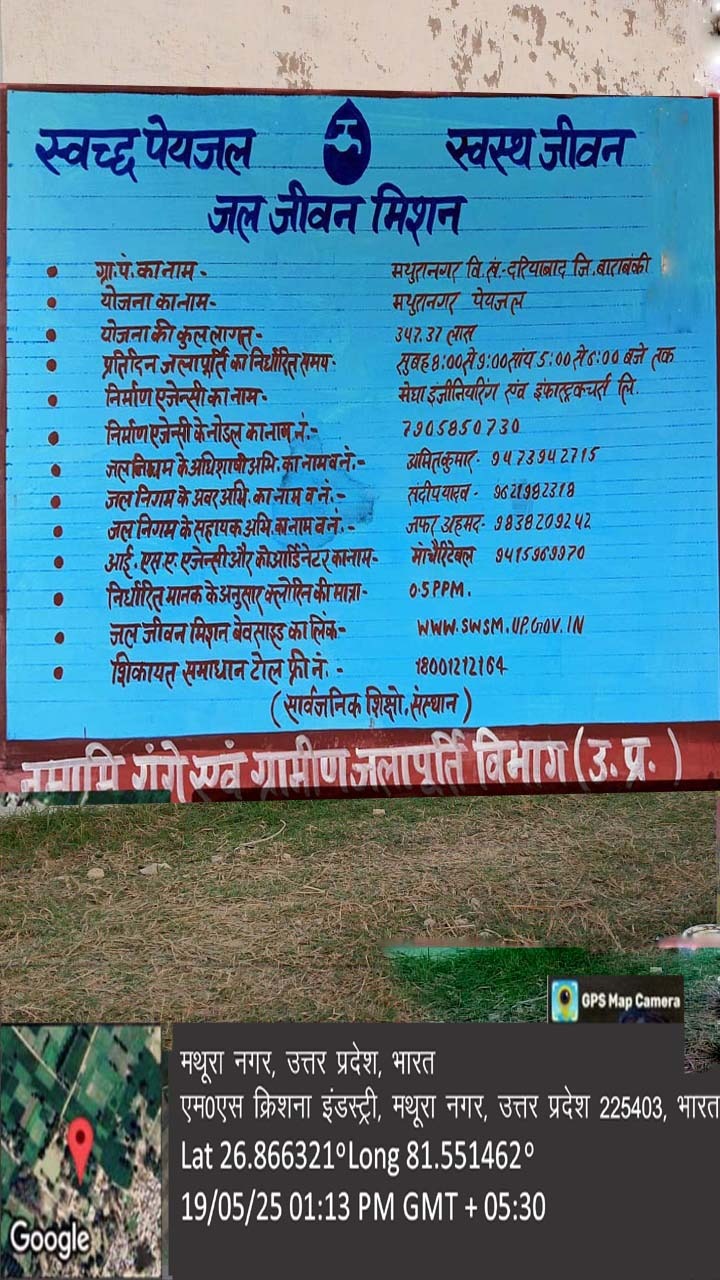 स्वच्छ पेयजल स्वस्थ जीवन
जल जीवन मिशन
• ग्रा.पं. का नाम - मथुरानगर वि.खं.-दरियाबाद जि.बाराबंकी
• योजना का नाम - मथुरानगर पेयजल
• योजना की कुल लागत - 347.37 लाख
• प्रतिदिन जलापूर्ति का निर्धारित समय - सुबह 8:00 से 9:00 सांय 5:00 से 6:00 बजे तक
• निर्माण एजेन्सी का नाम - मेघा इंजीनियरिंग एंव इंफास्ट्रकचर्स लि.
• निर्माण एजेन्सी के नोडल का नाम नं.- 7905850730
• जल निगम के अधिशाषी अभि. का नाम व नं.- अमित कुमार - 9473942715
• जल निगम के अवर अभि. का नाम व नं.- संदीप यादव - 9621982318
• जल निगम के सहायक अभि का नाम व नं.- जफर अहमद - 9838209242
• आई. एस.ए. एजेन्सी और कोआर्डिनेटर का नाम- मां चैरिटेबल 9415969970
• निर्धारित मानक के अनुसार क्लोरिन की मात्रा- 0.5 PPM.
• जल जीवन मिशन बेवसाइड का लिंक- WWW.SWSM.UP.GOV.IN
• शिकायत समाधान टोल फ्री नं. - 18001212164
(सार्वजनिक शिक्षो. संस्थान)
नमामि गंगे एवं ग्रामीण जलापूर्ति विभाग (उ.प्र.)
GPS Map Camera
मथूरा नगर, उत्तर प्रदेश, भारत
एम0एस क्रिशना इंडस्ट्री, मथूरा नगर, उत्तर प्रदेश 225403, भारत
Lat 26.866321° Long 81.551462°
19/05/25 01:13 PM GMT + 05:30
Google